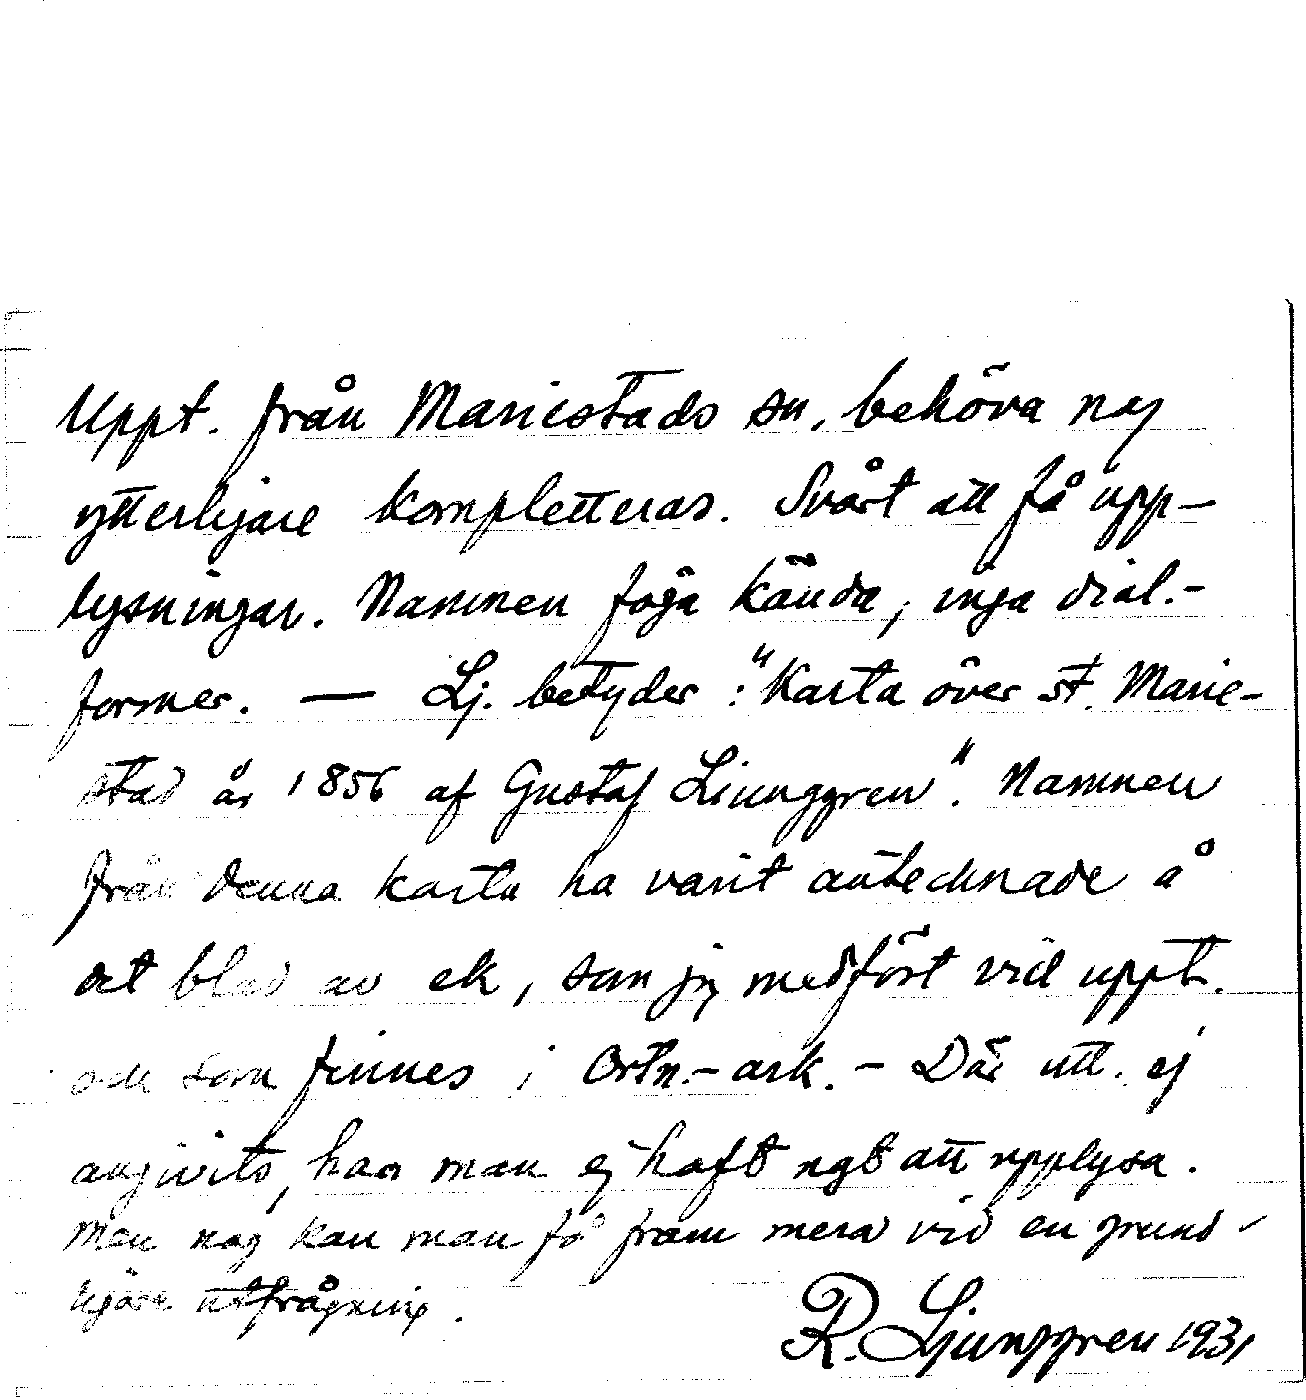 Uppt. från Mariestads sn. behöva nog
ytterligare kompletteras. Svårt att få upp-
lysningar. Namnen föga kända, inga dial.-
former. — Lj. betyder: "Karta över st. Marie-
stad år 1856 af Gustaf Ljunggren". Namnen
från denna karta ha varit antecknade å
det blad av ek, som jag medfört vid uppt.
och som finnes i Ortn.-ark. - Där utt. ej
angivits, har man ej haft ngt att upplysa.
Men nog kan man få fram mera vid en grund-
ligare utfrågning.
R. Ljunggren 1931